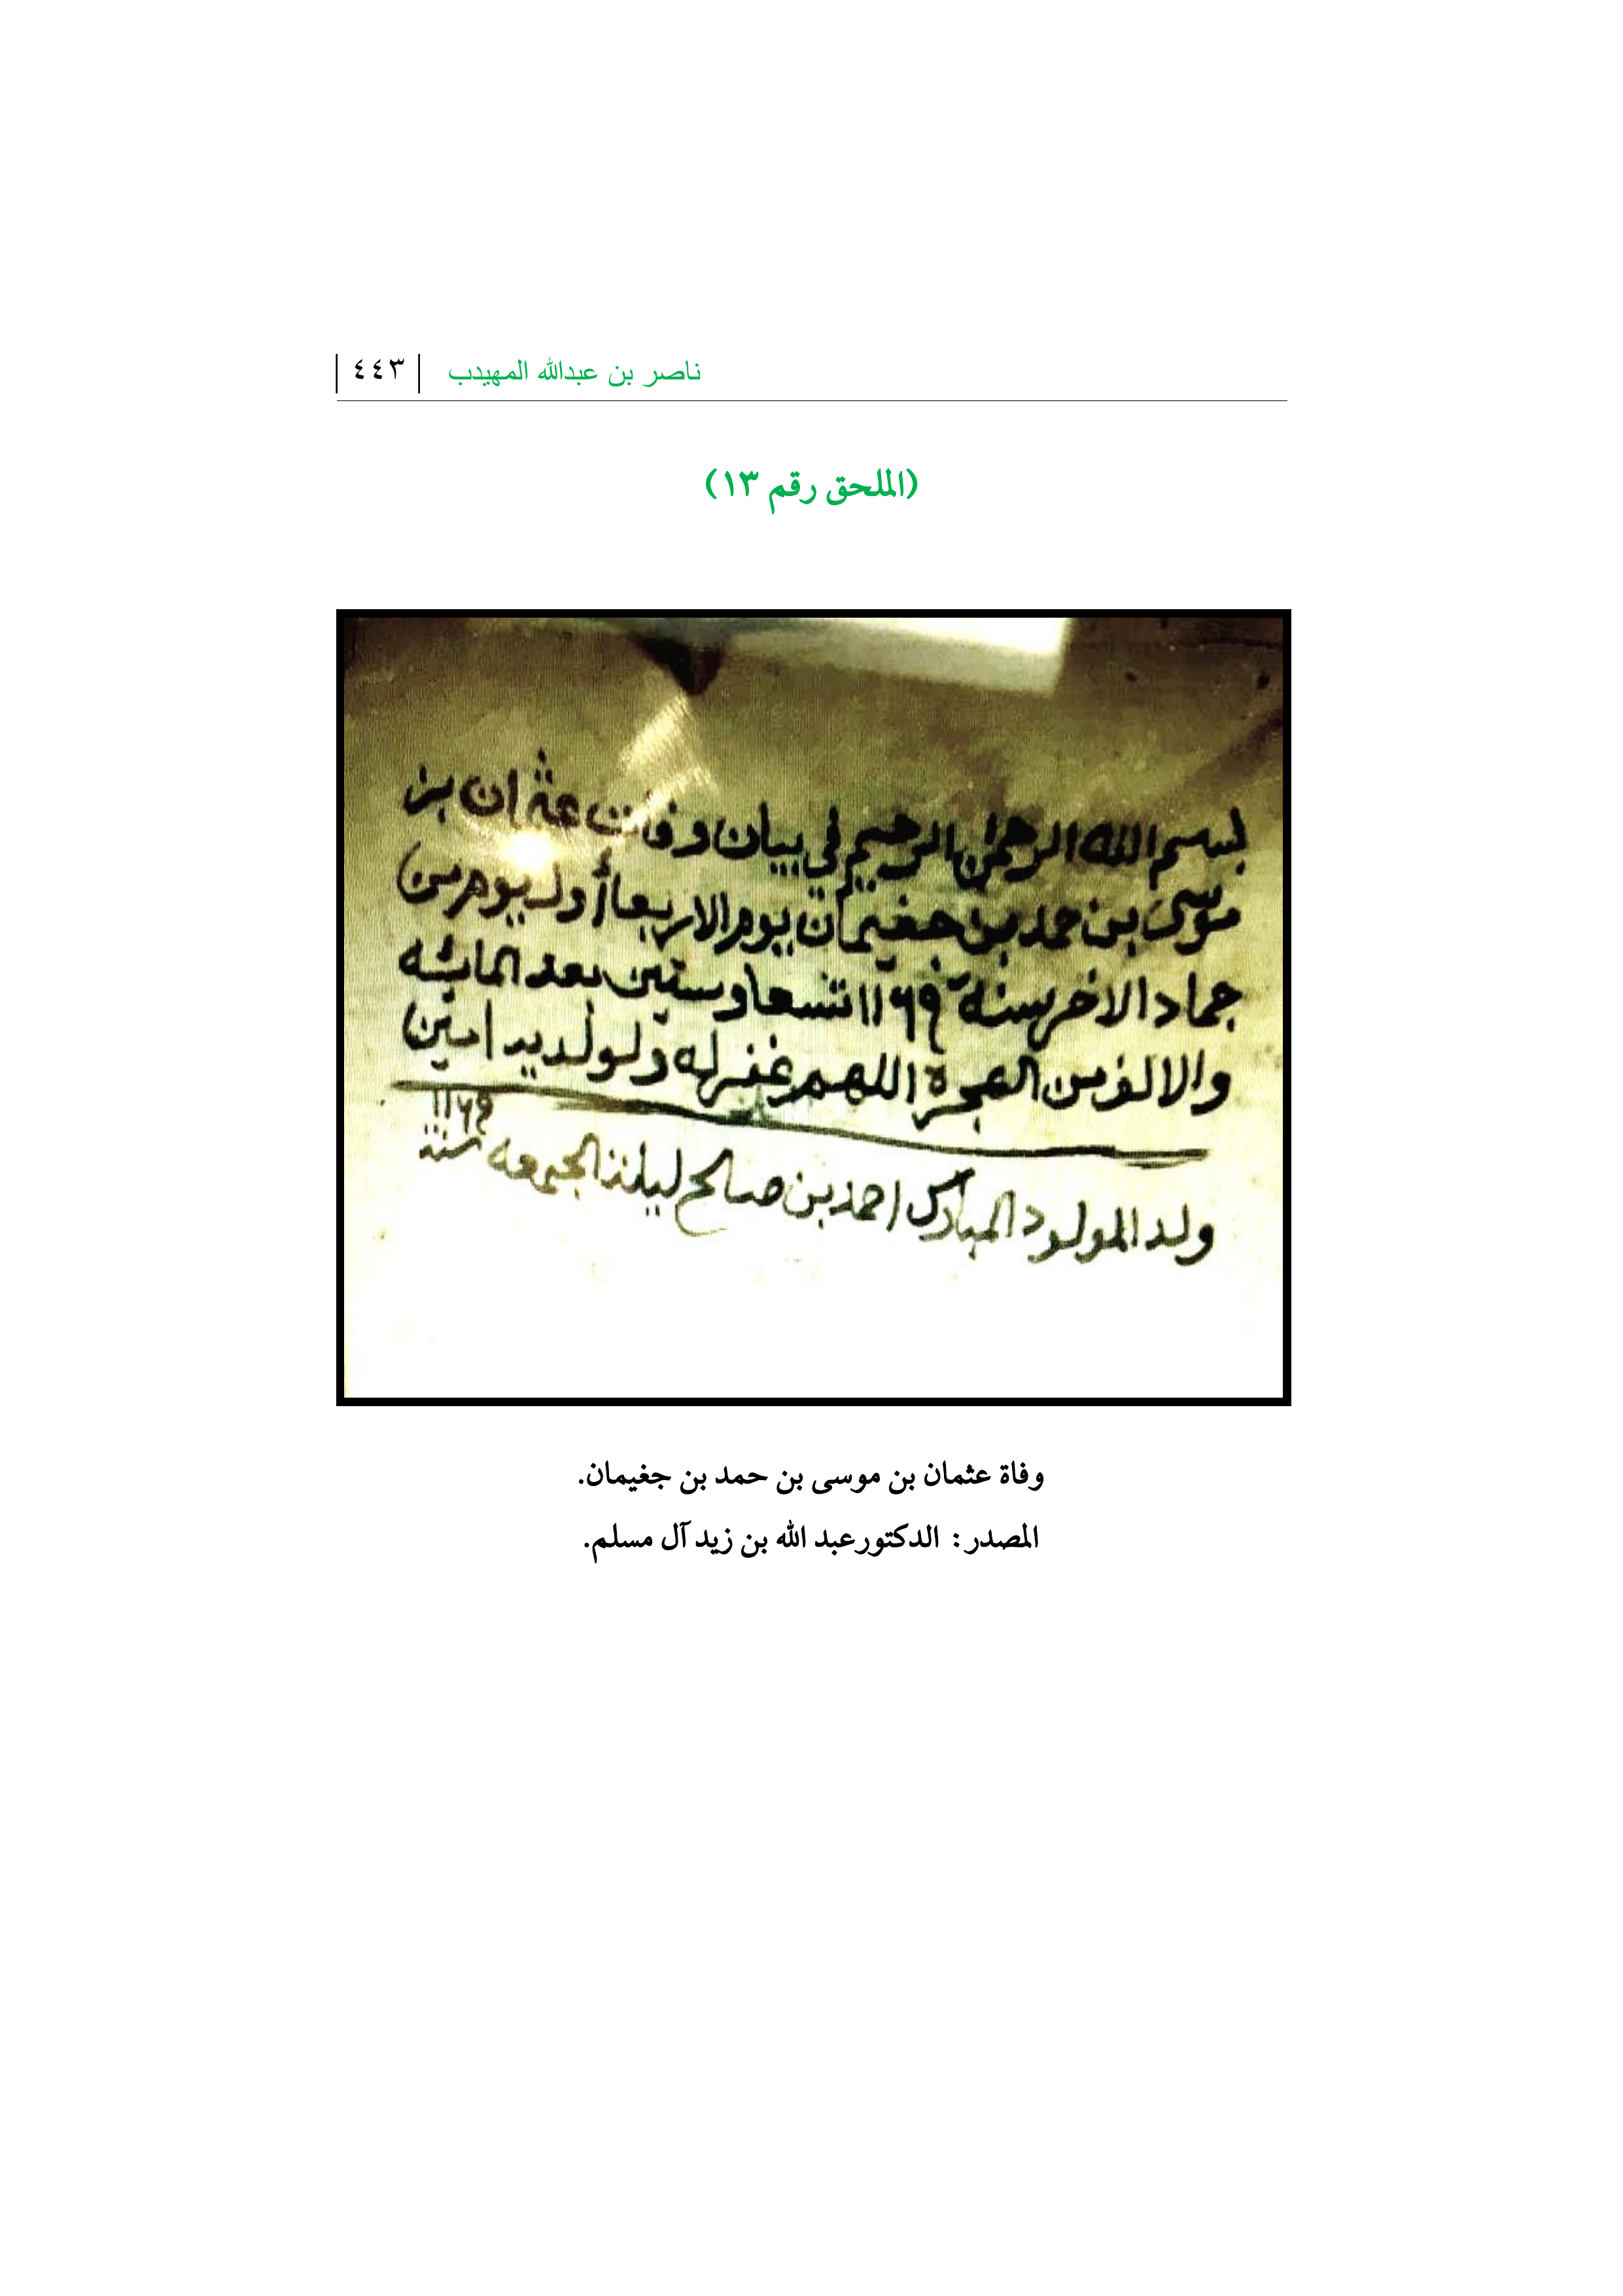 ناصر بن عبدالله المهيدب | ٤٤٣ |
(الملحق رقم ١٣)
بسم الله الرحمن الرحيم في بيان وفات عثمان بن
موسى بن حمد بن جغيمان يوم الاربعا أول يوم من
جماد الاخر سنة ١١٦٩ تسعا وستين بعد المائه
والالف من الهجرة اللهم غفر له ولولديه امين
ولد المولود المبارك احمد بن صالح ليلة الجمعه سنة ١١٦٩
وفاة عثمان بن موسى بن حمد بن جغيمان.
المصدر: الدكتورعبد الله بن زيد آل مسلم.